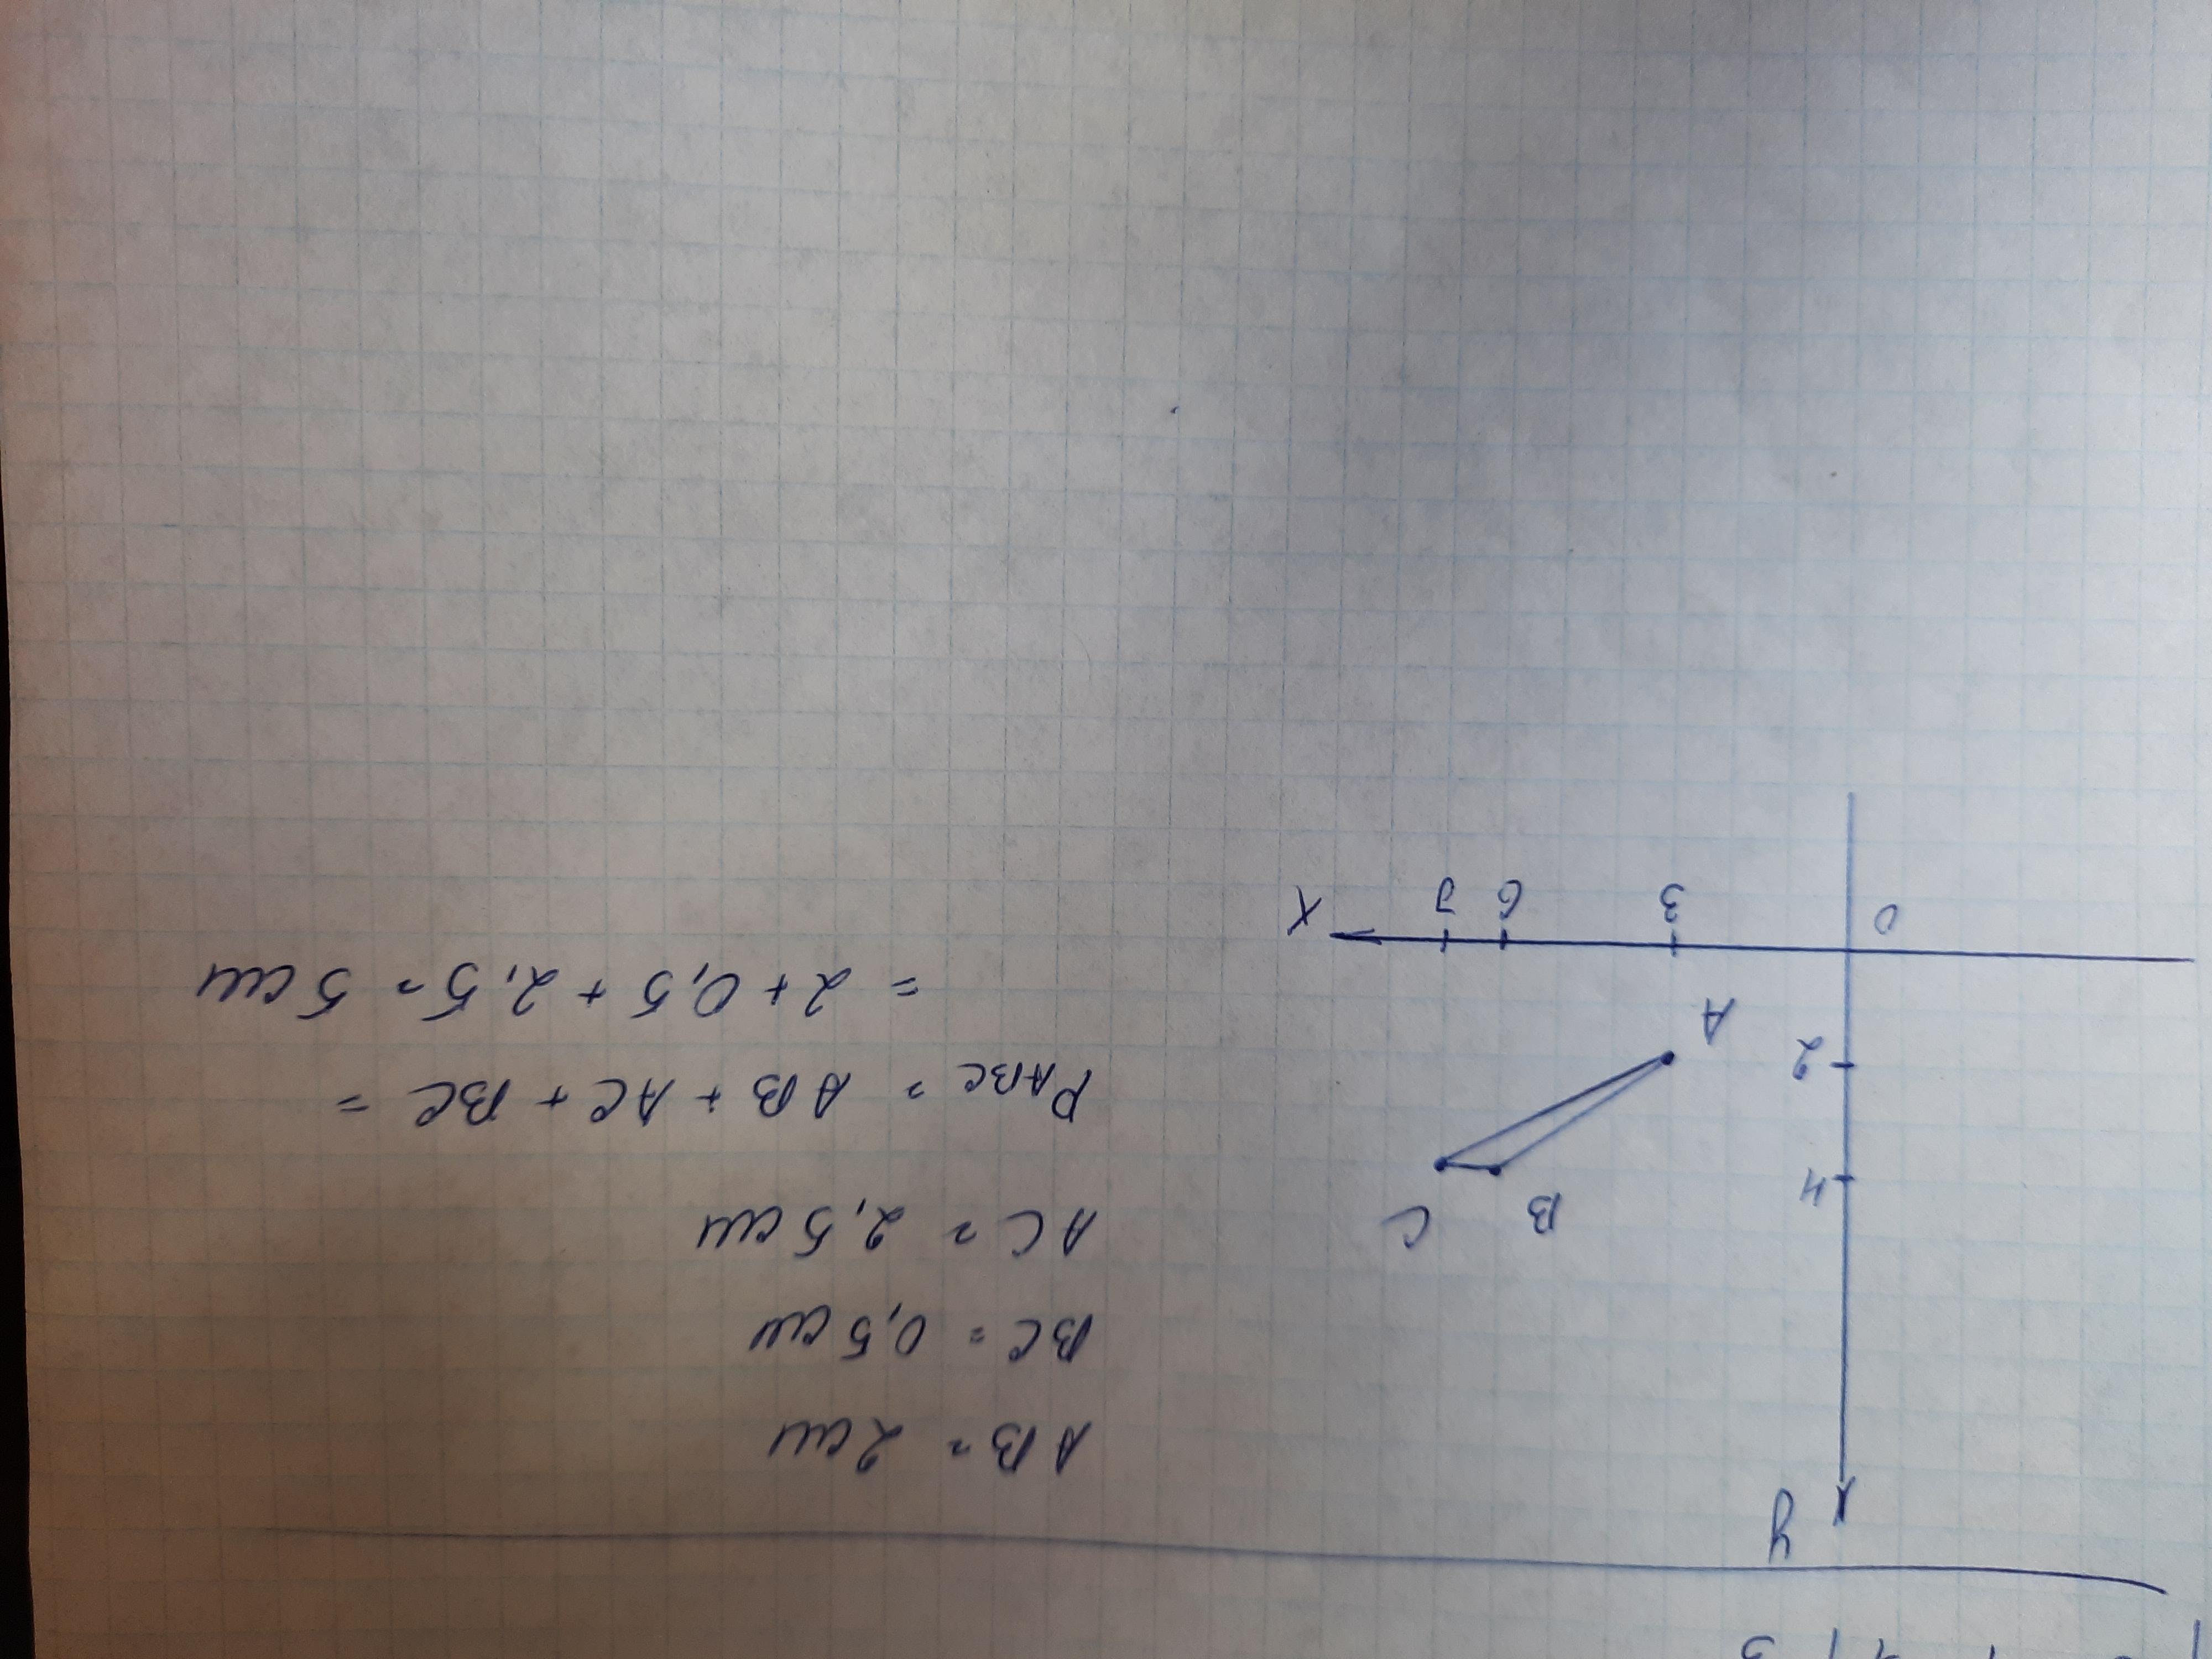 y
AB = 2 см
BC = 0,5 см
AC = 2,5 см
P ABC = AB + AC + BC =
= 2 + 0,5 + 2,5 = 5 см
B C
4
2
A
0 3 6 7 X